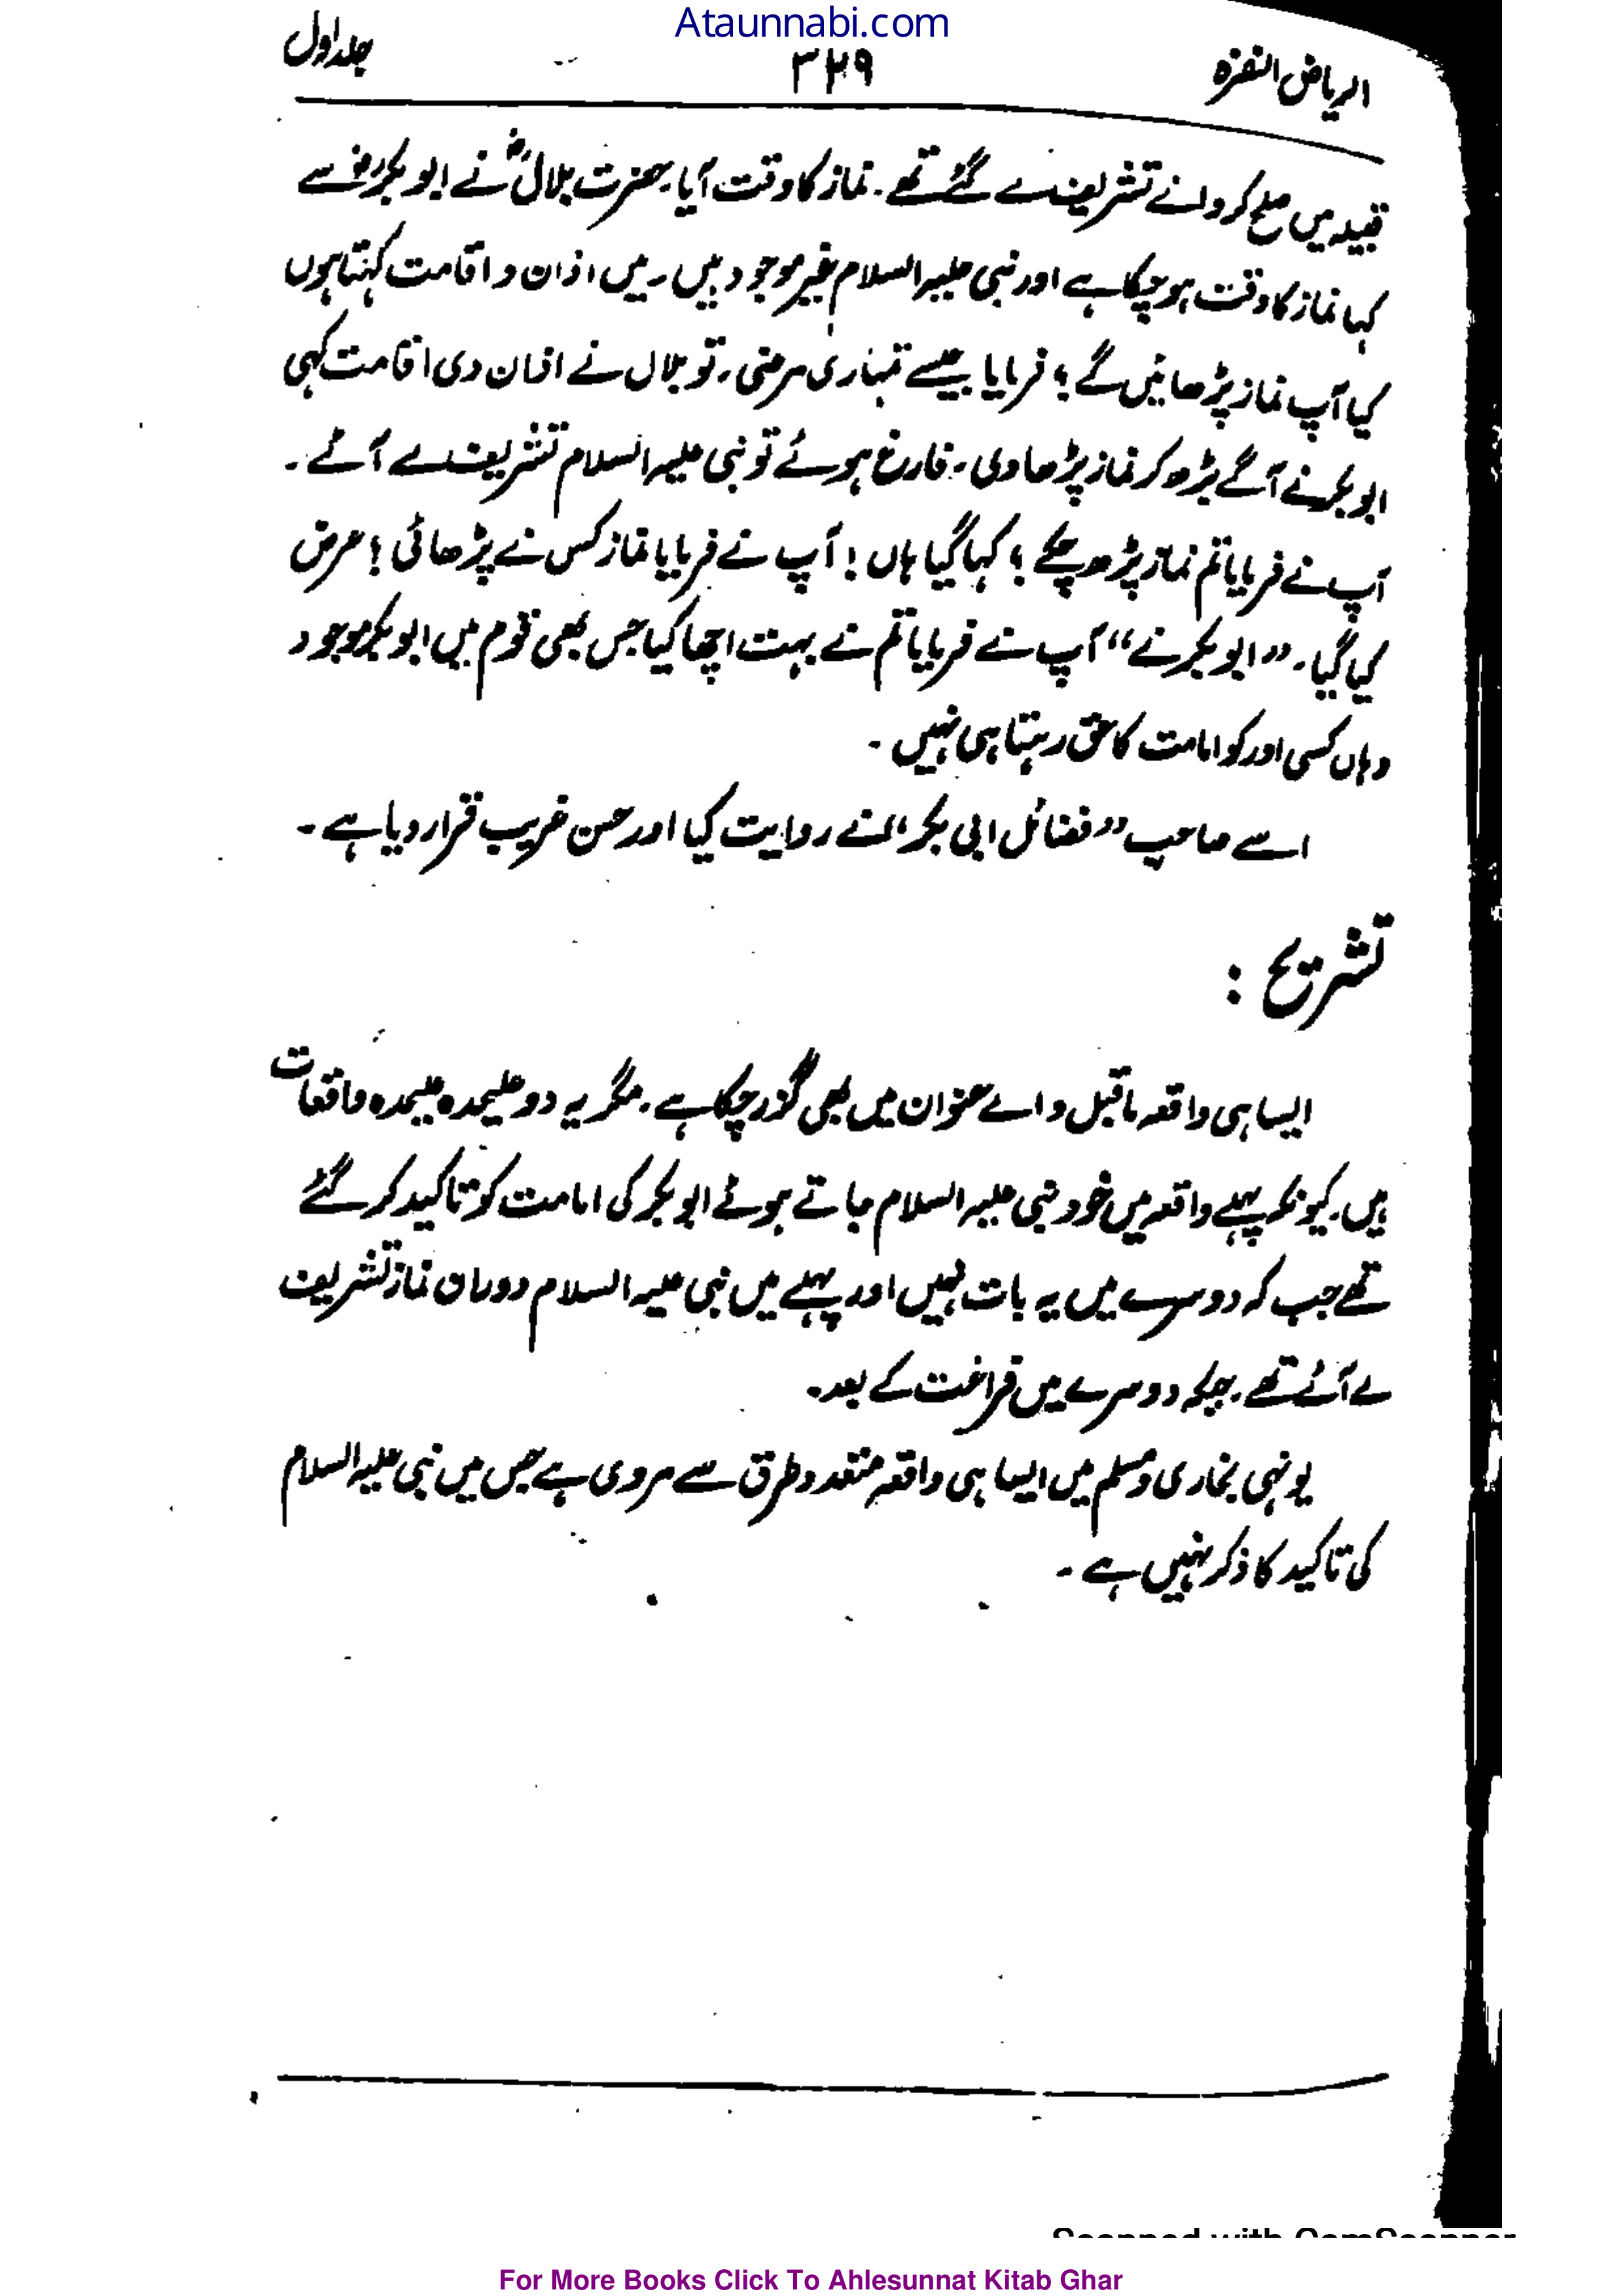 Ataunnabi.com
الریاض النضرہ ۳۲۹ جلد اول
قبیلہ میں صلح کروانے تشریف لے گئے تھے۔ نماز کا وقت آیا۔ حضرت بلالؓ نے ابوبکرؓ سے
کہا نماز کا وقت ہو چکا ہے اور نبی علیہ السلام غیر موجود ہیں۔ میں اذان و اقامت کہتا ہوں
کیا آپ نماز پڑھائیں گے؟ فرمایا جیسے تمہاری مرضی۔ تو بلال نے اذان دی اقامت کہی
ابوبکر نے آگے بڑھ کر نماز پڑھا دی۔ فارغ ہوئے تو نبی علیہ السلام تشریف لے آئے۔
آپ نے فرمایا تم نماز پڑھ چکے؟ کہا گیا ہاں! آپ نے فرمایا نماز کس نے پڑھائی؟ عرض
کیا گیا۔ ”ابوبکر نے“ آپ نے فرمایا تم نے بہت اچھا کیا جس بھی قوم میں ابوبکر موجود
وہاں کسی اور کو امامت کا حق رہتا ہی نہیں۔
اسے صاحب ”فضائل ابی بکر“ نے روایت کیا اور حسن غریب قرار دیا ہے۔
تشریح:
ایسا ہی واقعہ ماقبل والے عنوان میں بھی گزر چکا ہے۔ مگر یہ دو علیحدہ علیحدہ واقعات
ہیں۔ کیونکہ پہلے واقعہ میں خود نبی علیہ السلام جاتے ہوئے ابوبکر کی امامت کو تاکید کر گئے
تھے جب کہ دوسرے میں یہ بات نہیں اور پہلے میں نبی علیہ السلام دوران نماز تشریف
لے آئے تھے۔ جبکہ دوسرے میں فراغت کے بعد۔
یونہی بخاری و مسلم میں ایسا ہی واقعہ متعدد طرق سے مروی ہے جس میں نبی علیہ السلام
کی تاکید کا ذکر نہیں ہے۔
Scanned with CamScanner
For More Books Click To Ahlesunnat Kitab Ghar